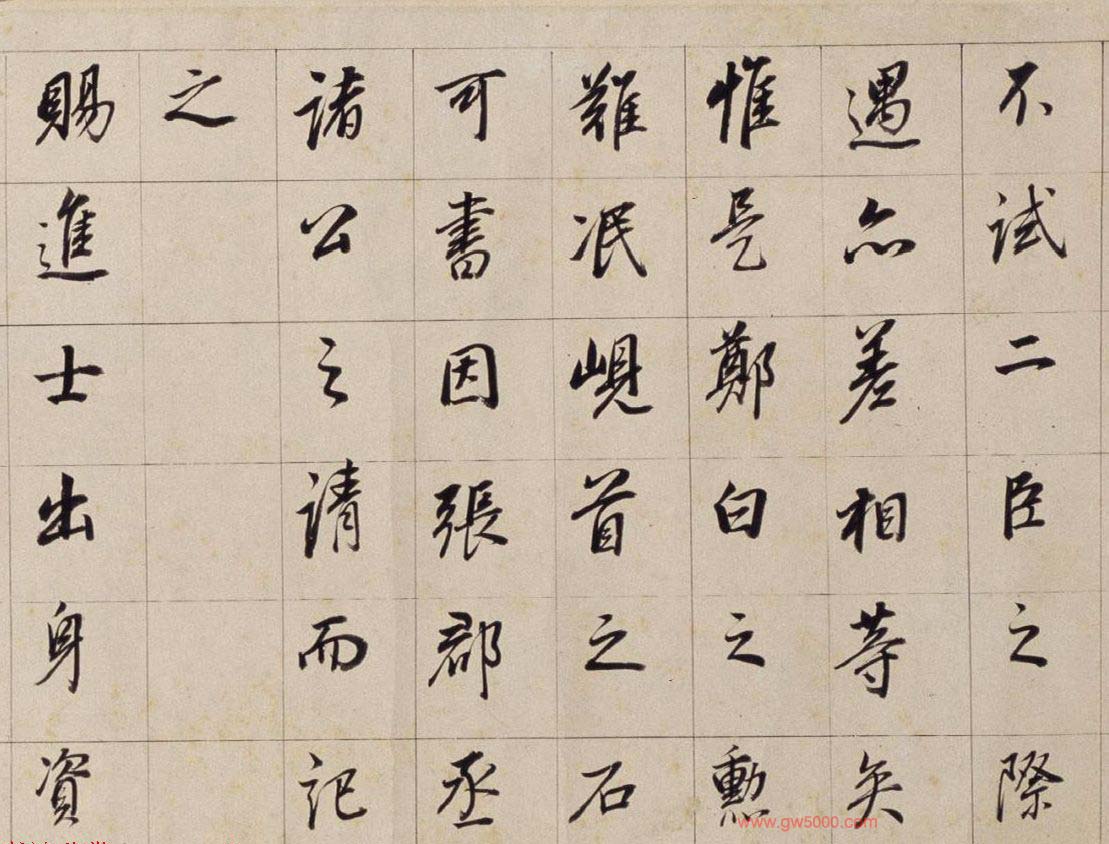 不試二臣之際
遇亦差相等矣
惟是鄭白之勲
難泯峴首之石
可書因張郡丞
諸公之請而記
之
賜進士出身資
www.gw5000.com